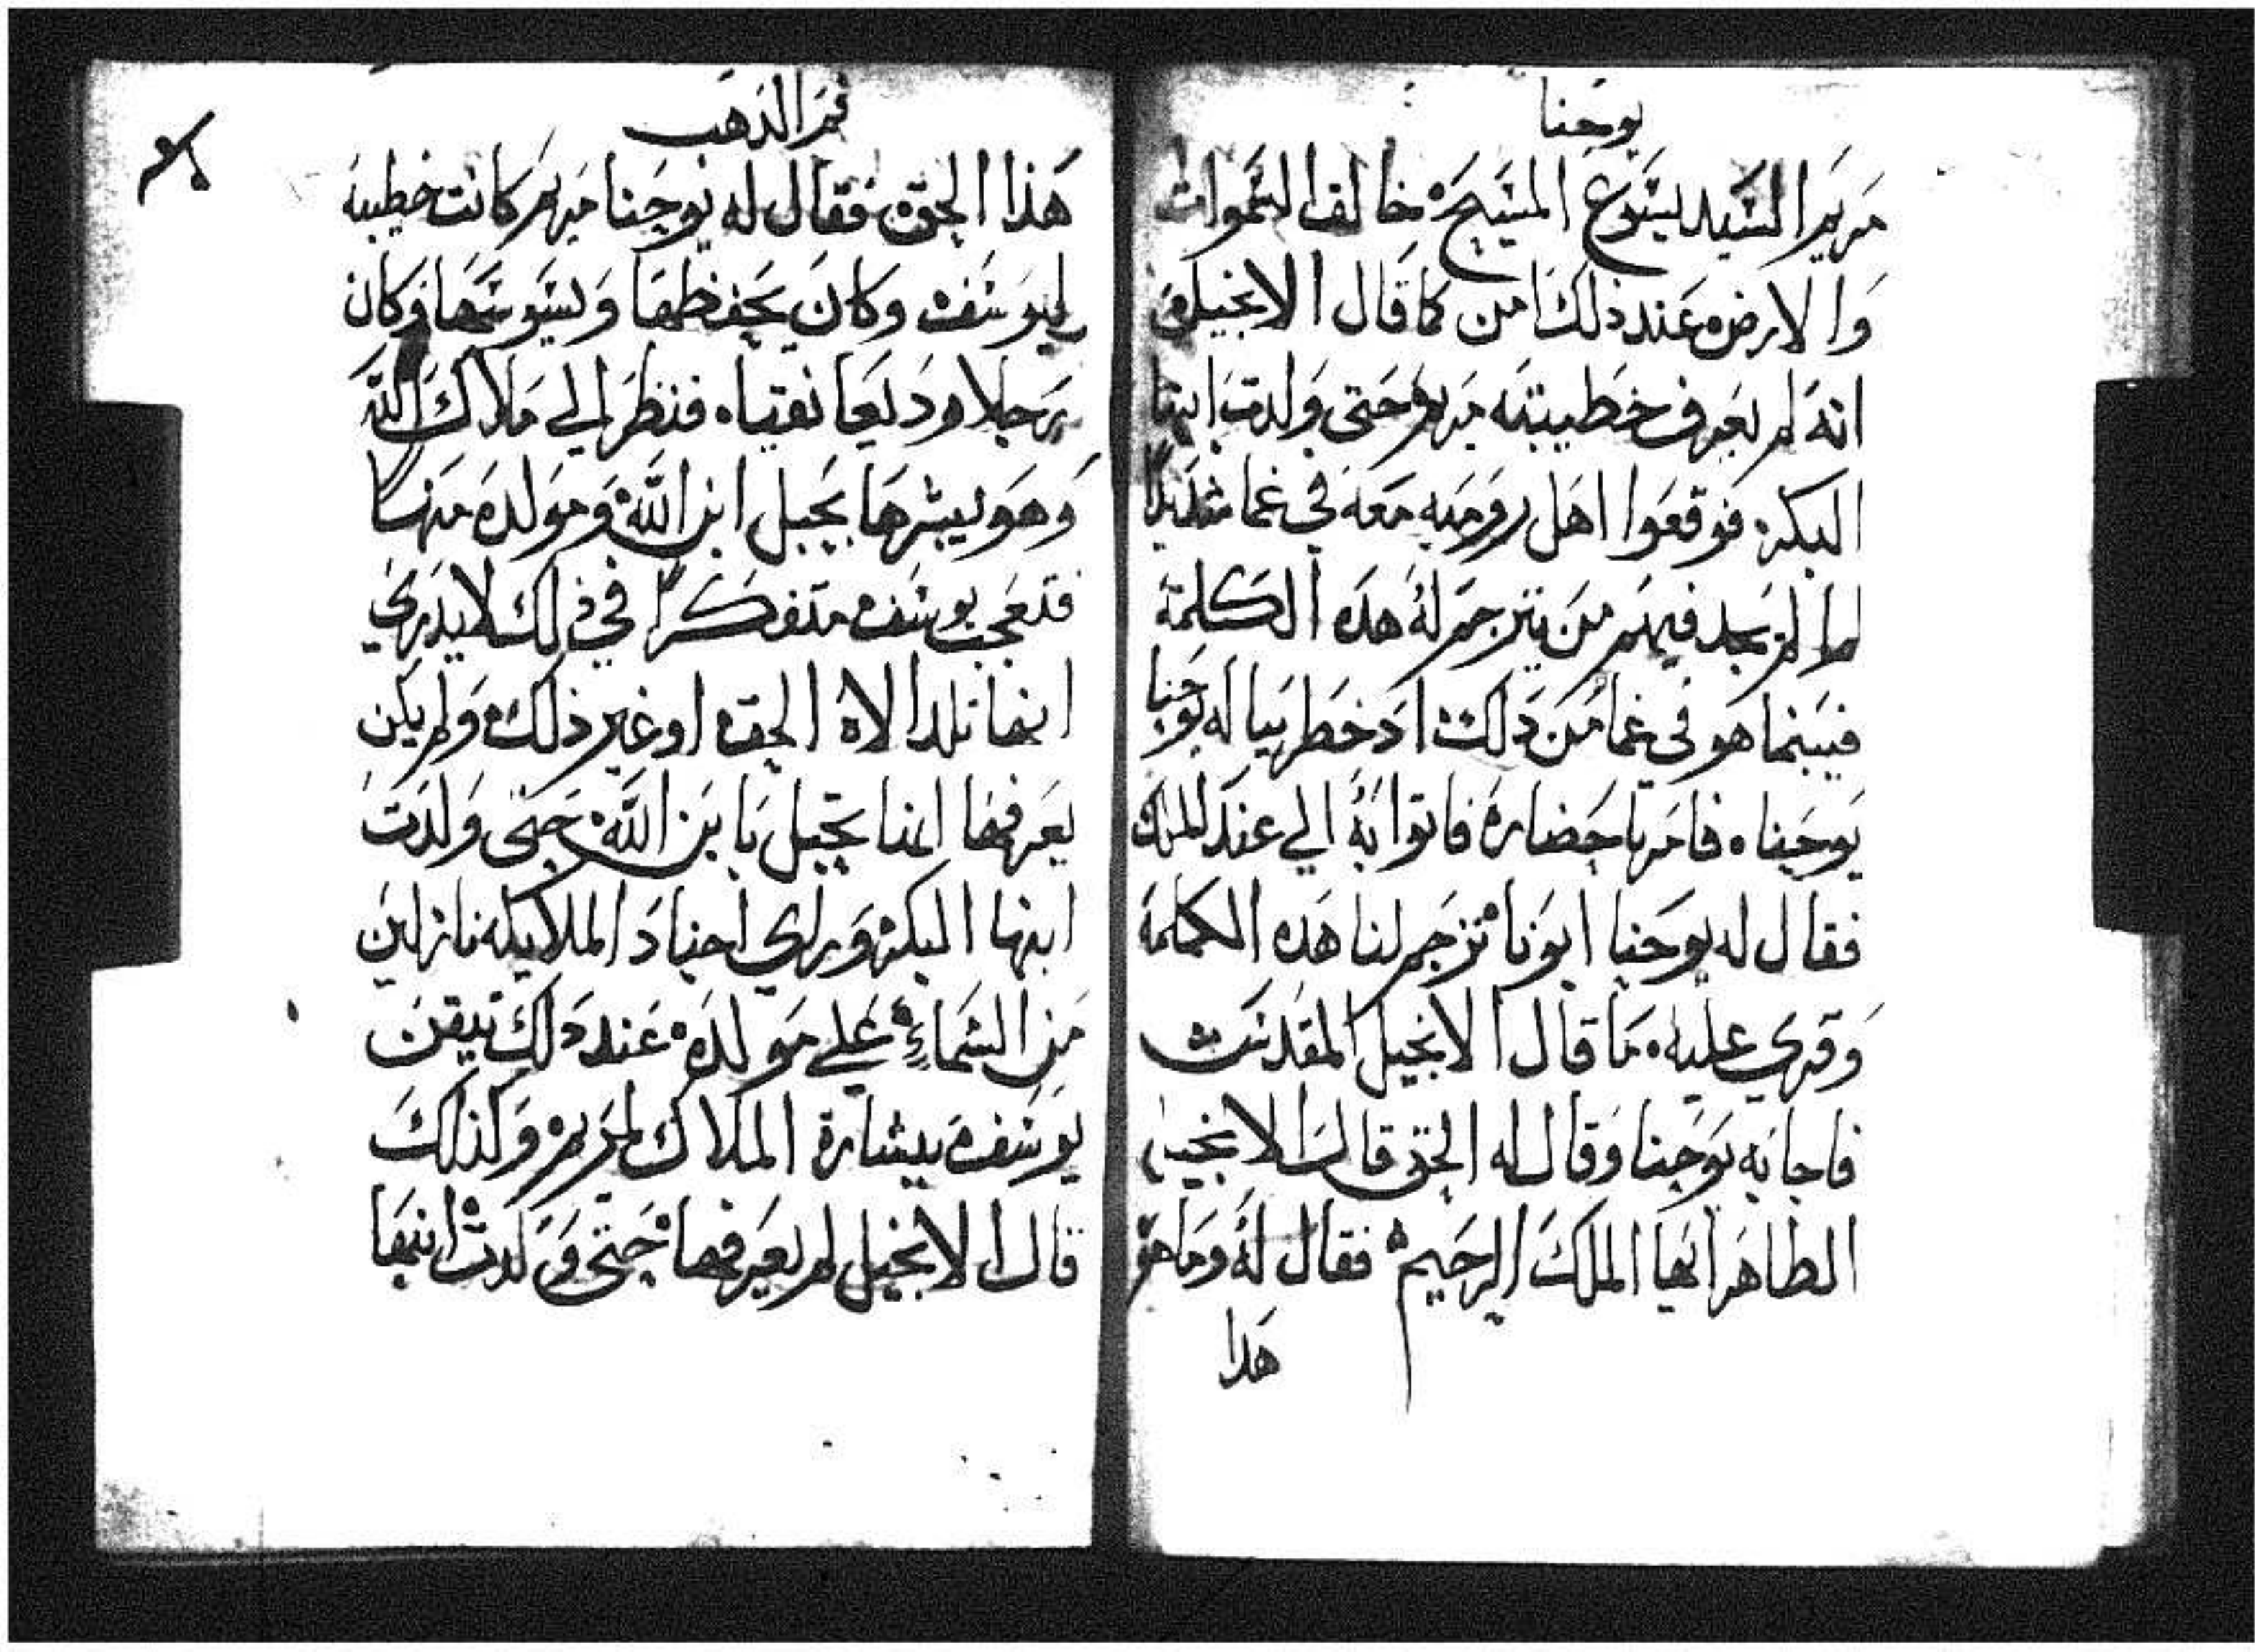 يوحنا
مريم السيد يسوع المسيح خالق السموات
والارض عند ذلك امن كما قال الانجيل
انه لم يعرف خطيبته مريم حتى ولدت ابنها
البكر فوقعوا اهل روميه معه في غما شديدا
لما لم يجد فيهم من يترجم له هده الكلمة
فبينما هو في غما من دلك اد خطر بباله يوحنا
يوحنا فامر باحضاره فاتوا به الي عند الملك
فقال له يوحنا ابونا ترجم لنا هده الكلمة
وقري عليه ما قال الانجيل المقدس
فاجابه يوحنا وقال له الحق قال الانجيل
الطاهر ايها الملك الرحيم فقال له وما هو
هدا
فم الذهب
هذا الحق فقال له يوحنا مريم كانت خطيبة
ليوسف وكان يحفظها ويسوسها وكان
رجلا وديعا نقيا فنظر الي ملاك الله
وهو يبشرها بحبل ابن الله ومولده منها
فتعجب يوسف متفكرا في ذلك لا يدري
انها تلد الاه الحق او غير ذلك ولم يكن
يعرفها انها تحبل بابن الله حتى ولدت
ابنها البكر وراي اجناد الملايكه نازلين
من السماء علي مولده عند دلك تيقن
يوسف ببشارة الملاك لمريم وكذلك
قال الانجيل لم يعرفها حتى ولدت ابنها